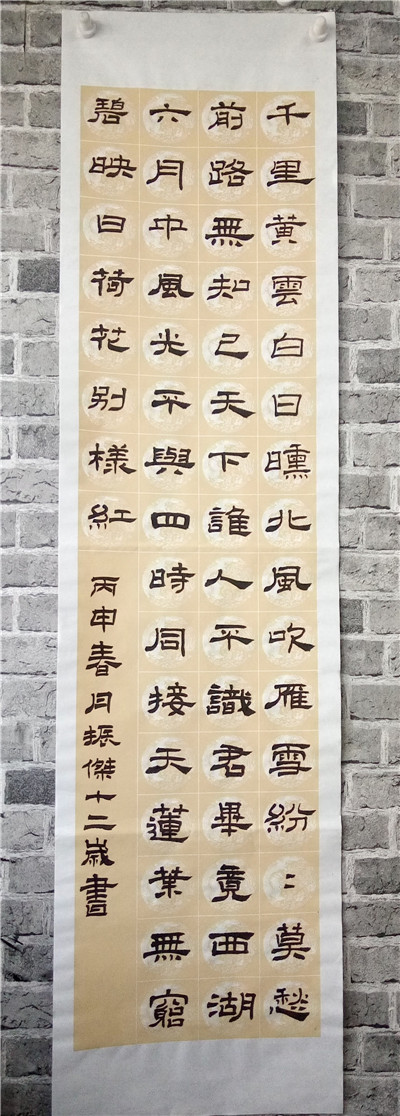 千里黄雲白日曛北風吹雁雪紛〻莫愁
前路無知己天下誰人不識君畢竟西湖
六月中風光不與四時同接天蓮葉無窮
碧映日荷花别樣紅
丙申春月振傑十二歲書